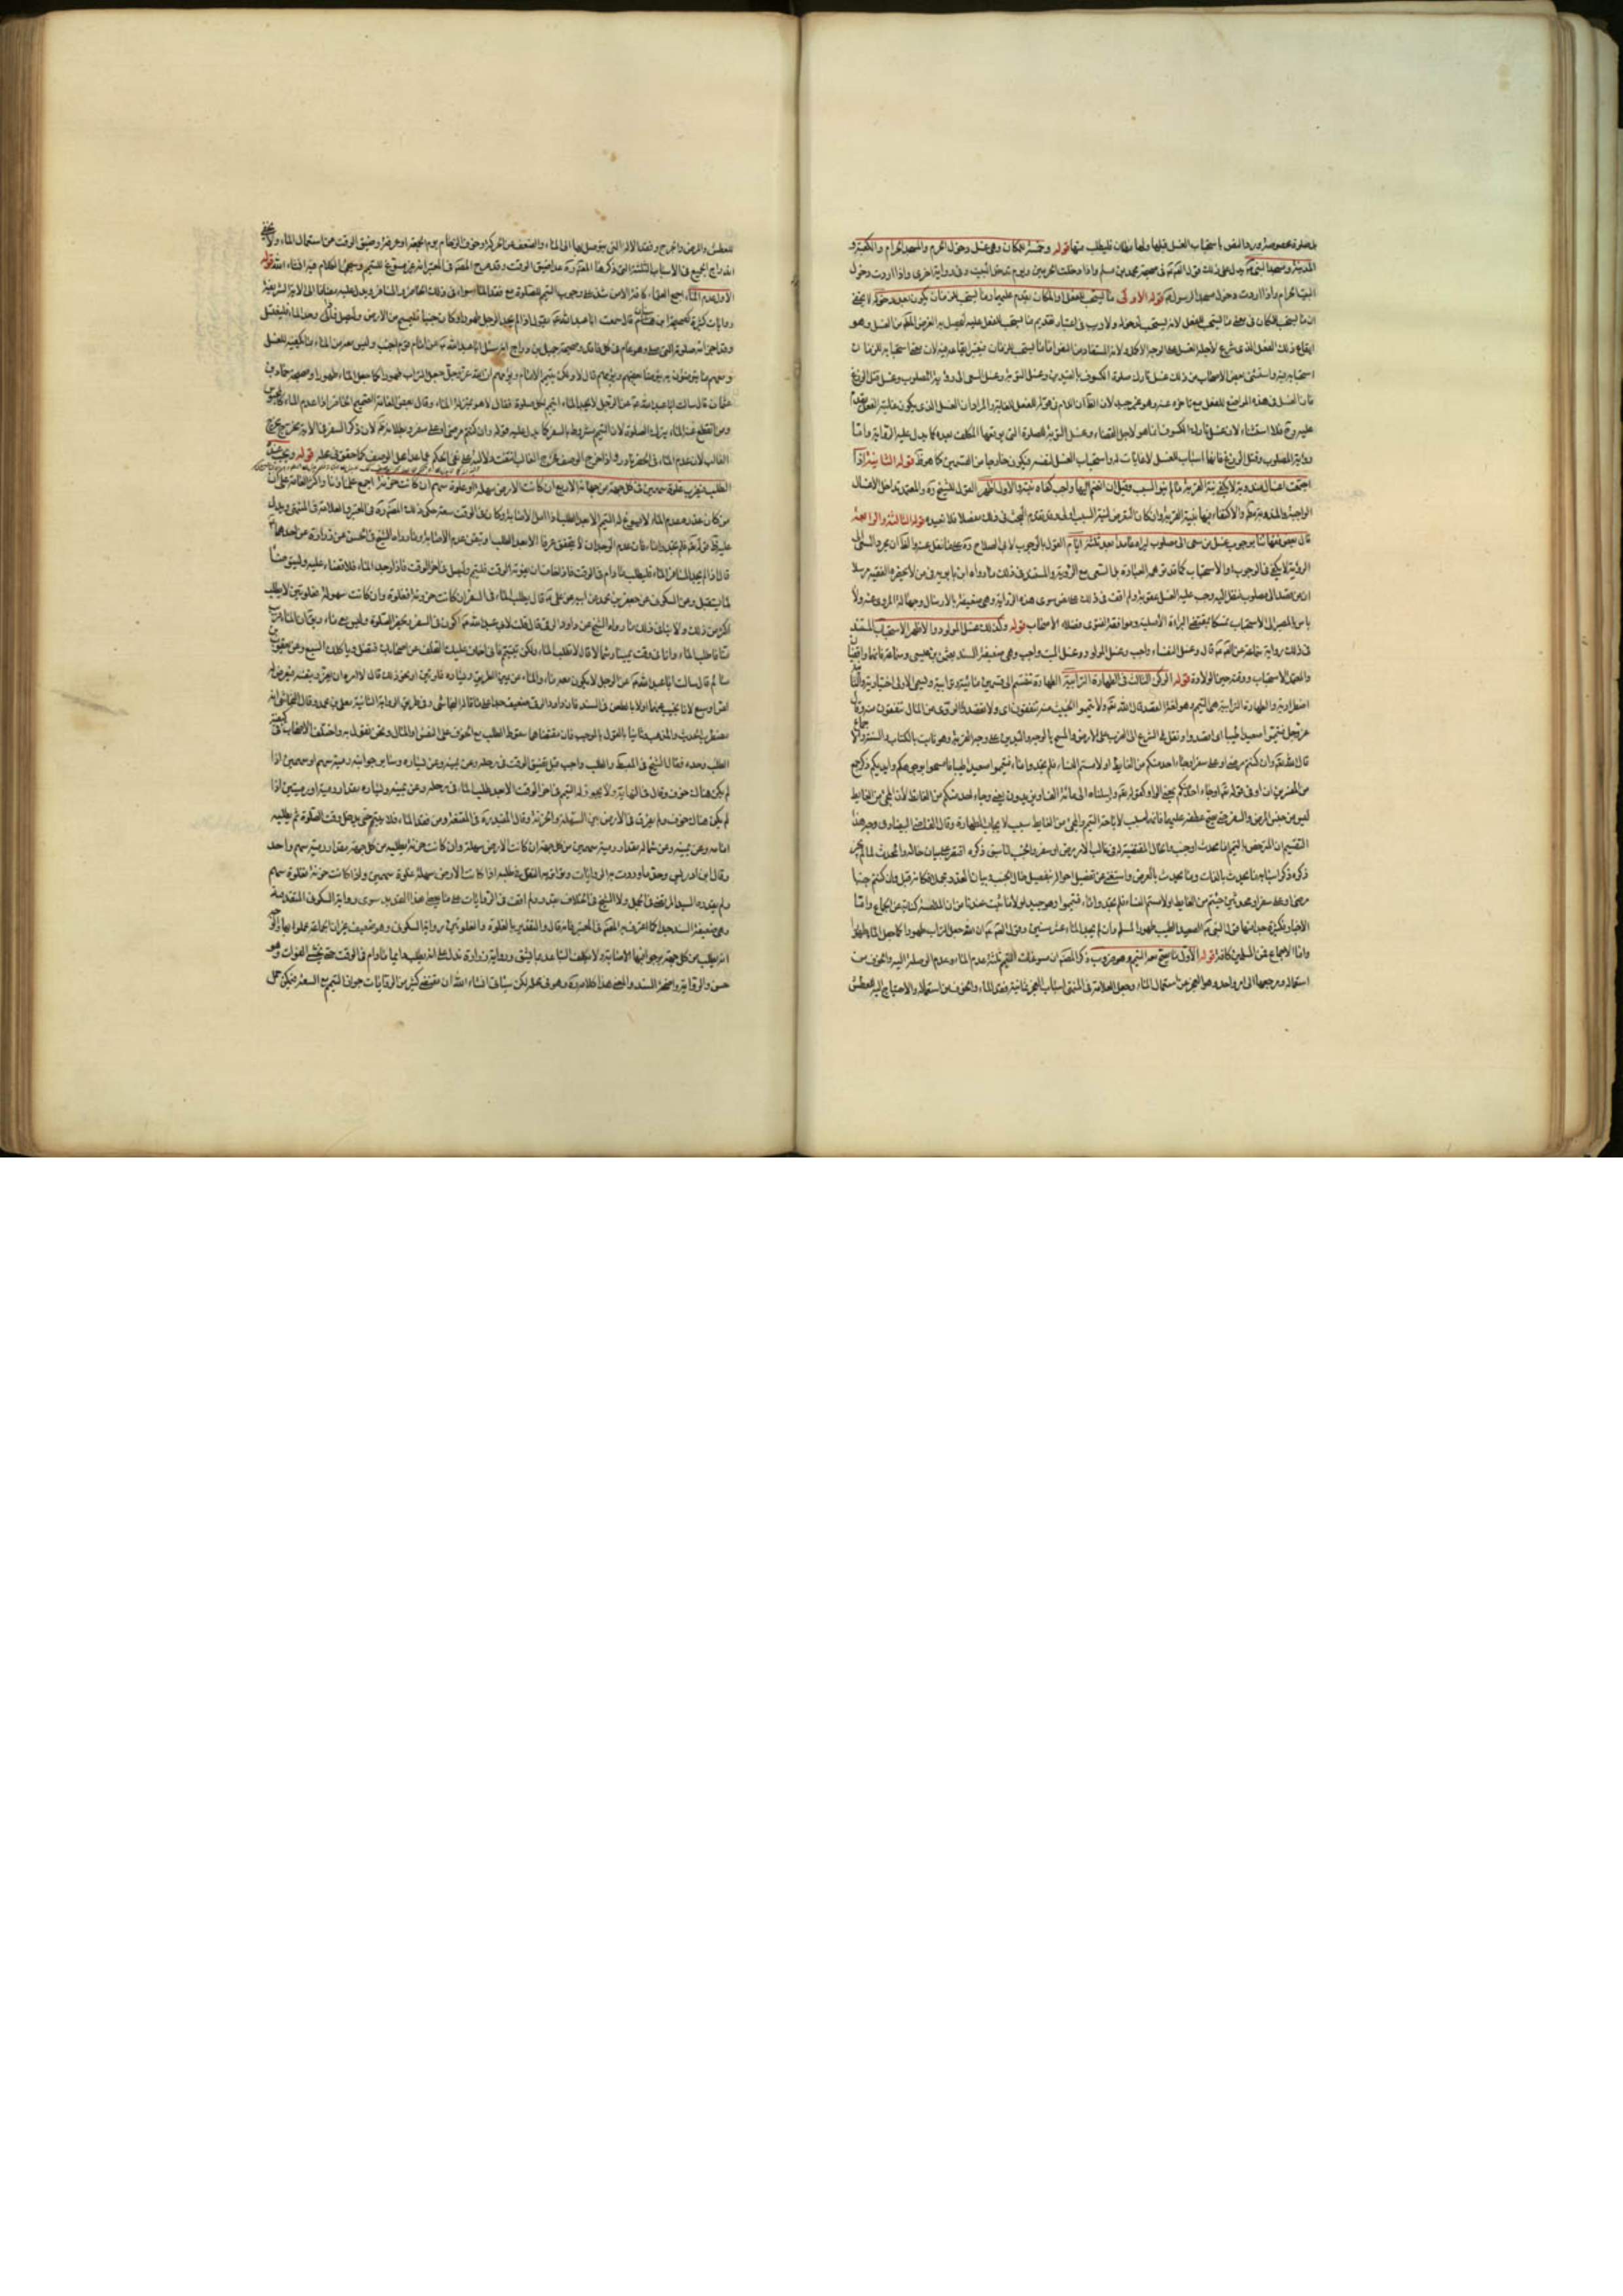 بل صلوة مخصوصة ورد النص باستحباب الغسل قبلها ولها مظان فليطلب منها قوله وخمسة للمكان وهي غسل دخول الحرم والمسجد الحرام والكعبة و
المدينة ومسجد النبي يدل على ذلك قوله في صحيحة محمد بن مسلم واذا دخلت الحرمين ويوم تدخل البيت وفي رواية اخرى واذا اردت دخول
البيت الحرام واذا اردت دخول مسجد الرسول قوله الاولى ما يستحب للفعل والمكان يقدم عليهما وما يستحب للزمان يكون بعد دخوله لا يخفى
ان ما يستحب للمكان في معنى ما يستحب للفعل لانه يستحب لدخوله ولا ريب في اعتبار تقديم ما يستحب للفعل عليه ليحصل به الغرض من الغسل وهو
ايقاع ذلك الفعل الذي شرع لاجله الغسل على الوجه الاكمل ولانه المستفاد من النص اما ما يستحب للزمان فيعتبر ايقاعه فيه لان معنى استحبابه للزمان
استحبابه فيه واستثنى بعض الاصحاب من ذلك غسل تارك صلوة الكسوف بالقيدين وغسل التوبة وغسل السعي الى رؤية المصلوب وغسل قتل الوزغ
فان الغسل في هذه المواضع للفعل مع تاخره عنه وهو غير جيد لان الظاهر ان اللام في قوله للفعل للغاية والمراد ان الغسل الذي يكون غايته الفعل يقدم
عليه وح فلا استثناء لان غسل تارك الكسوف انما هو لاجل القضاء وغسل التوبة للصلوة التي يوقعها المكلف بعده كما يدل عليه الرواية واما
رؤية المصلوب وقتل الوزغ فانهما اسباب الغسل لا غايات له واستحباب الغسل لنفسه فيكون خارجا من القسمين كما هو ظ قوله الثانية اذا
اجتمعت اغسال مندوبة لا يكفي نية القربة ما لم ينو السبب وقيل ان انضم اليها واجب كفاه نيته والاول اظهر القول للشيخ ره والمعتمد تداخل الاغسال
الواجبة والمندوبة والاكتفاء فيها بنية القربة وان كان التعرض لنية السبب اولى وقد تقدم البحث في ذلك مفصلا فلا نعيده قوله الثالثة والرابعة
قال بعض فقهائنا بوجوب غسل من سعى الى مصلوب ليراه عامدا بعد ثلثة ايام القول بالوجوب لابي الصلاح ره على ما نقل عنه والظاهر ان مجرد السعي الى
الرؤية لا يكفي في الوجوب او الاستحباب كما قد توهمه العبارة بل السعي مع الرؤية والمستند في ذلك ما رواه ابن بابويه في من لا يحضره الفقيه مرسلا
ان من قصد الى مصلوب فنظر اليه وجب عليه الغسل عقوبة ولم اقف في ذلك على نص سوى هذه الرواية وهي ضعيفة بالارسال وجهالة المروي عنه ولا
باس بالمصير الى الاستحباب تمسكا بمقتضى البراءة الاصلية وموافقة لفتوى فضلاء الاصحاب قوله وكذلك غسل المولود والاظهر الاستحباب المستند
في ذلك رواية سماعة عن قال وغسل النفساء واجب وغسل المولود واجب وغسل الميت واجب وهي ضعيفة السند بعثمن بن عيسى وسماعة فانهما واقفيان
والمعتمد الاستحباب ووقته حين الولادة قوله الركن الثالث في الطهارة الترابية الطهارة تنقسم الى قسمين مائية وترابية وتسمى الاولى اختيارية والثانية
اضطرارية والطهارة الترابية هي التيمم وهو لغة القصد قال الله تعالى ولا تيمموا الخبيث منه تنفقون اي ولا تقصدوا الردي من المال تنفقون منه وقال
عز وجل فتيمموا صعيدا طيبا اي اقصدوا ونقل في الشرع الى الضرب على الارض والمسح بالوجه واليدين على وجه القربة وهو ثابت بالكتاب والسنة والاجماع
قال الله تعالى وان كنتم مرضى او على سفر او جاء احد منكم من الغايط او لامستم النساء فلم تجدوا ماء فتيمموا صعيدا طيبا فامسحوا بوجوهكم وايديكم
من المفسرين ان او في قوله تعالى او جاء احد منكم بمعنى الواو كقوله تعالى وارسلناه الى مائة الف او يزيدون يعني وجاء احد منكم من الغايط لان المجيء من الغايط
ليس من جنس المرض والسفر حتى يصح عطفه عليهما فانهما سبب لاباحة التيمم والمجيء من الغايط سبب لايجاب الطهارة وقال القاضي البيضاوي وجه هذا
التقسيم ان المترخص بالتيمم اما محدث او جنب والحال المقتضية له في غالب الامر مرض او سفر والجنب لما سبق ذكره اقتصر على بيان حاله والمحدث لما لم يجر
ذكره ذكر اسبابه ما يحدث بالذات وما يحدث بالعرض واستغنى عن تفصيل احواله بتفصيل حال الجنب وبيان العذر مجملا فكانه قيل وان كنتم جنبا
مرضى او على سفر او محدثين جئتم من الغايط او لامستم النساء فلم تجدوا ماء فتيمموا وهو جيد لولا ما ثبت عندنا من ان الملامسة كناية عن الجماع واما
الاخبار فكثيرة جدا منها قول النبي الصعيد الطيب طهور المسلم وان لم يجد الماء عشر سنين وقول ان الله جعل التراب طهورا كما جعل الماء طهورا
واما الاجماع فمن المسلمين كافة قوله الاول ما يصح معه التيمم وهو ضروب ذكر المصنف ان مسوغات التيمم ثلثة عدم الماء وعدم الوصلة اليه والخوف من
استعماله ومرجعها الى امر واحد وهو العجز عن استعمال الماء وجعل العلامة في المنتهى اسباب العجز ثمانية فقد الماء والخوف من استعماله والاحتياج اليه للعطش
للعطش والمرض والجرح وفقد الآلة التي يتوصل بها الى الماء والضعف عن الحركة وخوف الزحام يوم الجمعة او عرفة وضيق الوقت عن استعمال الماء ولا يخفى
اندراج الجميع في الاسباب الثلثة التي ذكرها المصنف عدا ضيق الوقت وقد صرح المصنف في المعتبر انه غير مسوغ للتيمم وسيجيء الكلام فيه انشاء الله قوله
الاول عدم الماء اجمع العلماء كافة الا من شذ على وجوب التيمم للصلوة مع فقد الماء سواء في ذلك الحاضر والمسافر ويدل عليه مضافا الى الآية الشريفة
روايات كثيرة كصحيحة ابن سنان قال سمعت ابا عبد الله يقول اذا لم يجد الرجل طهورا وكان جنبا فليمسح من الارض وليصل فاذا وجد الماء فليغتسل
وقد اجزاته صلوته التي صلى وهو عام في كل فاقد وصحيحة جميل بن دراج انه سئل ابا عبد الله عن امام قوم اجنب وليس معه من الماء ما يكفيه للغسل
ومعهم ما يتوضؤن به يتوضا بعضهم ويؤمهم قال لا ولكن يتيمم الامام ويؤمهم ان الله عز وجل جعل التراب طهورا كما جعل الماء طهورا وصحيحة حماد بن
عثمان قال سالت ابا عبد الله عن الرجل لا يجد الماء ايتيمم لكل صلوة فقال لا هو بمنزلة الماء وقال بعض العامة الصحيح الحاضر اذا عدم الماء كالمحبوس
ومن انقطع عنه الماء يترك الصلوة لان التيمم مشروط بالسفر كما يدل عليه قوله وان كنتم مرضى او على سفر وبطلانه ظ لان ذكر السفر في الآية خرج مخرج
الغالب لان عدم الماء في الحضر نادر واذا خرج الوصف مخرج الغالب انتفت دلالته على نفي الحكم عما عدا محل الوصف كما حقق في محله قوله ويجب عنده
الطلب فيضرب غلوة سهمين في كل جهة من جهاته الاربع ان كانت الارض سهلة او غلوة سهم ان كانت حزنة اجمع علماؤنا واكثر العامة على ان
من كان عذره عدم الماء لا يسوغ له التيمم الا بعد الطلب اذا امل الاصابة وكان في الوقت سعة حكى ذلك المصنف في المعتبر والعلامة في المنتهى ويدل
عليه قوله تعالى فلم تجدوا ماء فان عدم الوجدان لا يتحقق عرفا الا بعد الطلب او تيقن عدم الاصابة وما رواه الشيخ في الحسن عن زرارة عن احدهما
قال اذا لم يجد المسافر الماء فليطلب ما دام في الوقت فاذا خاف ان يفوته الوقت فليتيمم وليصل في اخر الوقت فاذا وجد الماء فلا قضاء عليه وليتوضأ
لما يستقبل وعن السكوني عن جعفر بن محمد عن ابيه عن علي قال يطلب الماء في السفر ان كانت حزونة فغلوة وان كانت سهولة فغلوتين لا يطلب
اكثر من ذلك ولا ينافي ذلك ما رواه الشيخ عن داود الرقي قال قلت لابي عبد الله اكون في السفر وتحضر الصلوة وليس معي ماء ويقال ان الماء قريب
منا فاطلب الماء وانا في وقت يمينا وشمالا قال لا تطلب الماء ولكن تيمم فاني اخاف عليك التخلف عن اصحابك فتضل وياكلك السبع وعن يعقوب بن
سالم قال سالت ابا عبد الله عن الرجل لا يكون معه ماء والماء عن يمين الطريق ويساره غلوتين او نحو ذلك قال لا آمره ان يغرر بنفسه فيعرض له
لص او سبع لانا نجيب عنهما اولا بالطعن في السند فان داود الرقي ضعيف جدا على ما قاله النجاشي وفي طريق الرواية الثانية معلى بن محمد وقال النجاشي انه
مضطرب الحديث والمذهب وثانيا بالقول بالموجب فان مقتضاهما سقوط الطلب مع الخوف على النفس او المال ونحن نقول به واختلف الاصحاب في كيفية
الطلب وحده فقال الشيخ في المبسوط والطلب واجب قبل تضيق الوقت في رحله وعن يمينه وعن يساره وسائر جوانبه رمية سهم او سهمين اذا
لم يكن هناك خوف وقال في النهاية ولا يجوز له التيمم في اخر الوقت الا بعد طلب الماء في رحله وعن يمينه ويساره مقدار رمية او رميتين اذا
لم يكن هناك خوف ولم يفرق في الارض بين السهلة والحزنة وقال المفيد ره في المقنعة ومن فقد الماء فلا يتيمم حتى يدخل وقت الصلوة ثم يطلبه
امامه وعن يمينه وعن شماله مقدار رمية سهمين من كل جهة ان كانت الارض سهلة وان كانت حزنة طلبه من كل جهة مقدار رمية سهم واحد
وقال ابن ادريس وحد ما وردت به الروايات وتواتر به النقل في طلبه اذا كانت الارض سهلة غلوة سهمين واذا كانت حزنة فغلوة سهم
ولم يقدره السيد المرتضى في الجمل ولا الشيخ في الخلاف بقدر ولم اقف في الروايات على ما يعطي هذا التحديد سوى رواية السكوني المتقدمة
وهي ضعيفة السند جدا كما اعترف به المصنف في المعتبر فانه قال والتقدير بالغلوة والغلوتين رواية السكوني وهو ضعيف غير ان الجماعة عملوا بها والوجه
انه يطلب من كل جهة يرجو فيها الاصابة ولا يكلف التباعد بما يشق ورواية زرارة تدل على انه يطلب دايما ما دام في الوقت حتى يخشى الفوات وهو
حسن والرواية واضحة السند والمعنى هذا كلامه ره وهو في محله لكن سيأتي انشاء الله ان مقتضى كثير من الروايات جواز التيمم مع السعة فيمكن حمل